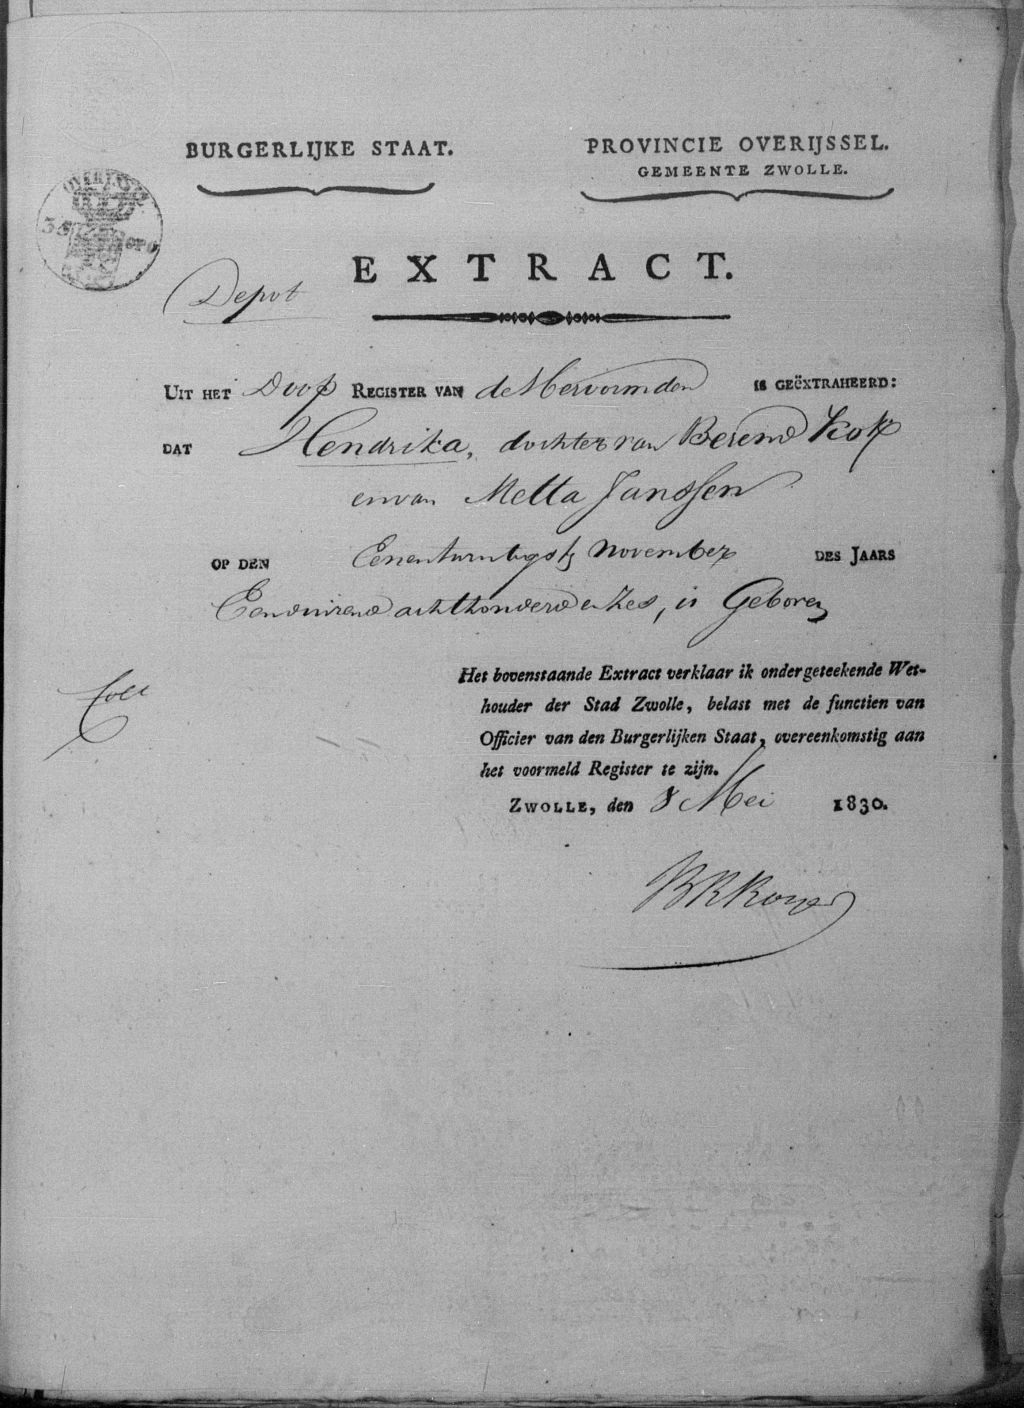 BURGERLIJKE STAAT.
PROVINCIE OVERIJSSEL.
GEMEENTE ZWOLLE.
35
EXTRACT.
Depot
UIT HET Doop REGISTER VAN de Hervormden IS GEËXTRAHEERD:
DAT Hendrika, dochter van Berend Kok
en van Metta Janssen
OP DEN Eenentwintigste November DES JAARS
Eenduizend achthonderd en Zes, is Geboren
Het bovenstaande Extract verklaar ik ondergeteekende Wet-
houder der Stad Zwolle, belast met de functien van
Officier van den Burgerlijken Staat, overeenkomstig aan
het voormeld Register te zijn.
ZWOLLE, den 8 Mei 1830.